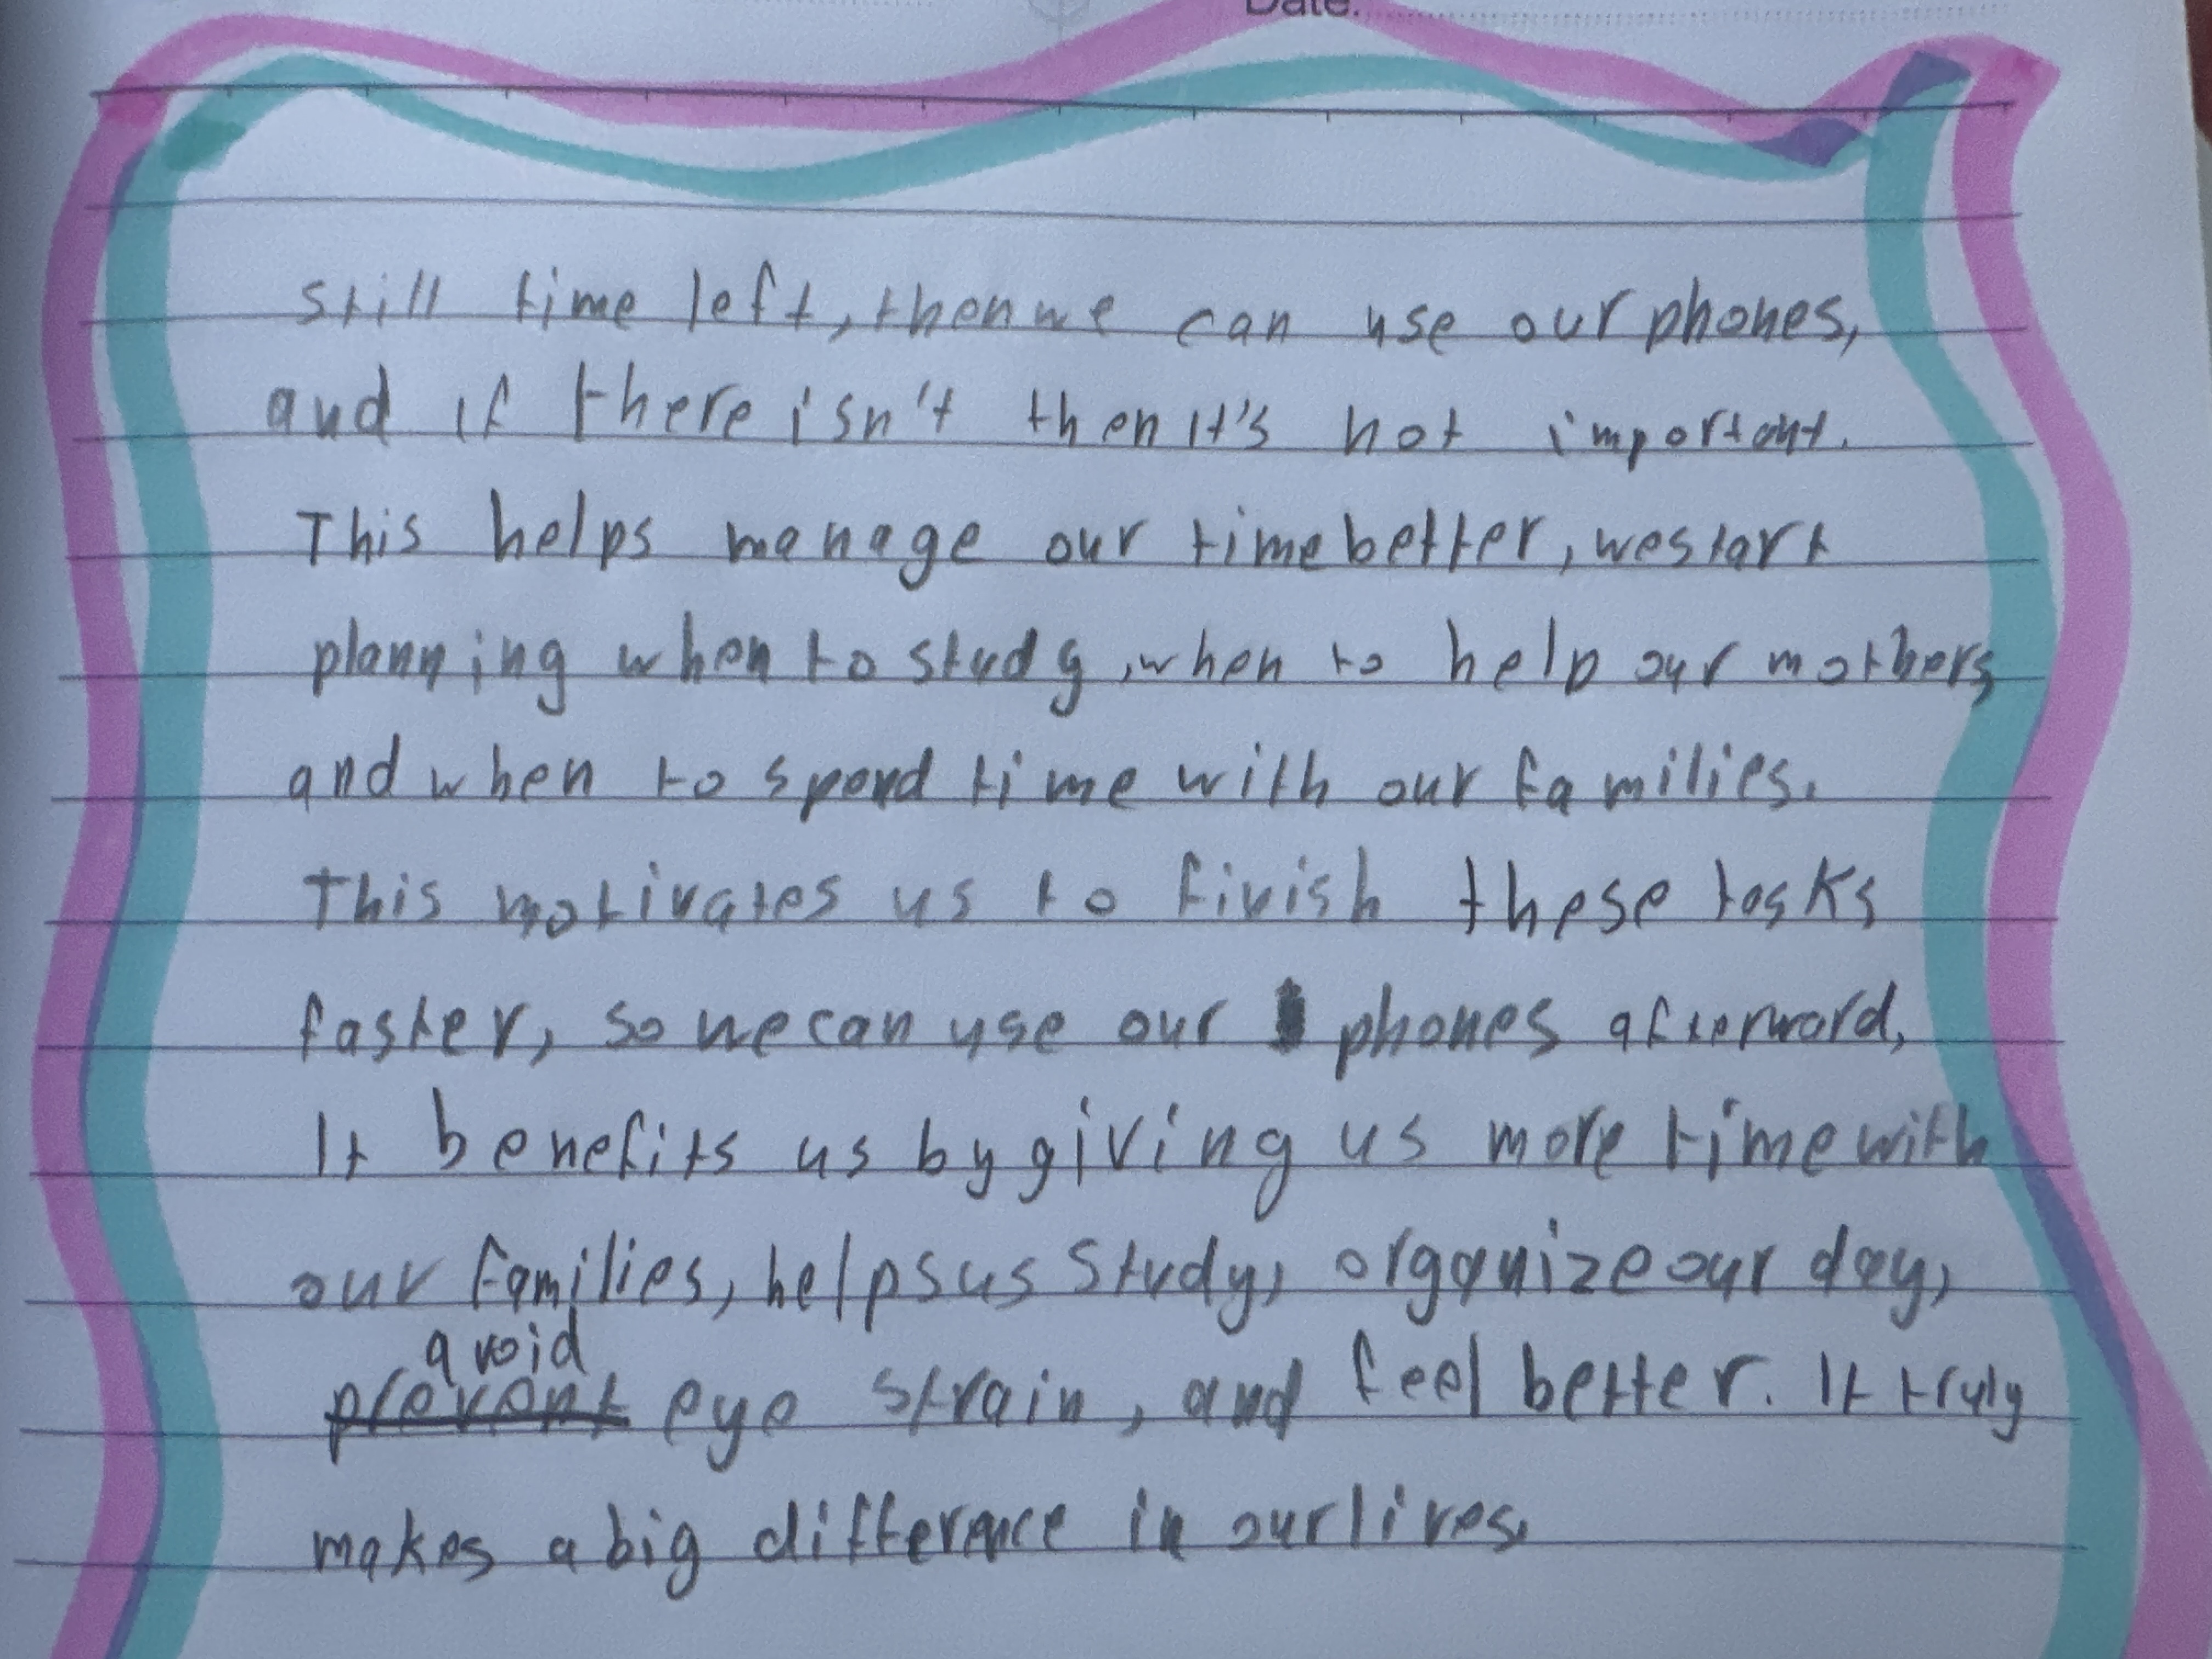 Date:
still time left, then we can use our phones,
and if there isn't then it's not important.
This helps manage our time better, we start
planning when to study, when to help our mothers
and when to spend time with our families.
This motivates us to finish these tasks
faster, so we can use our phones afterward,
It benefits us by giving us more time with
our families, helps us study, organize our day,
avoid
prevent eye strain, and feel better. It truly
makes a big difference in our lives.